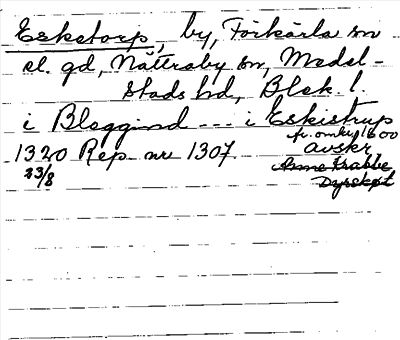 Eskstorp, by, Förkärla sn
el. gd, Nättraby sn, Medel-
stads hd, Blek. l.
i Bleggind --- i Eskistrup
fr. omkr. 1600
1320 Rep. nr 1307. avskr.
23/8 Anne Krabbe
Dyrskøt